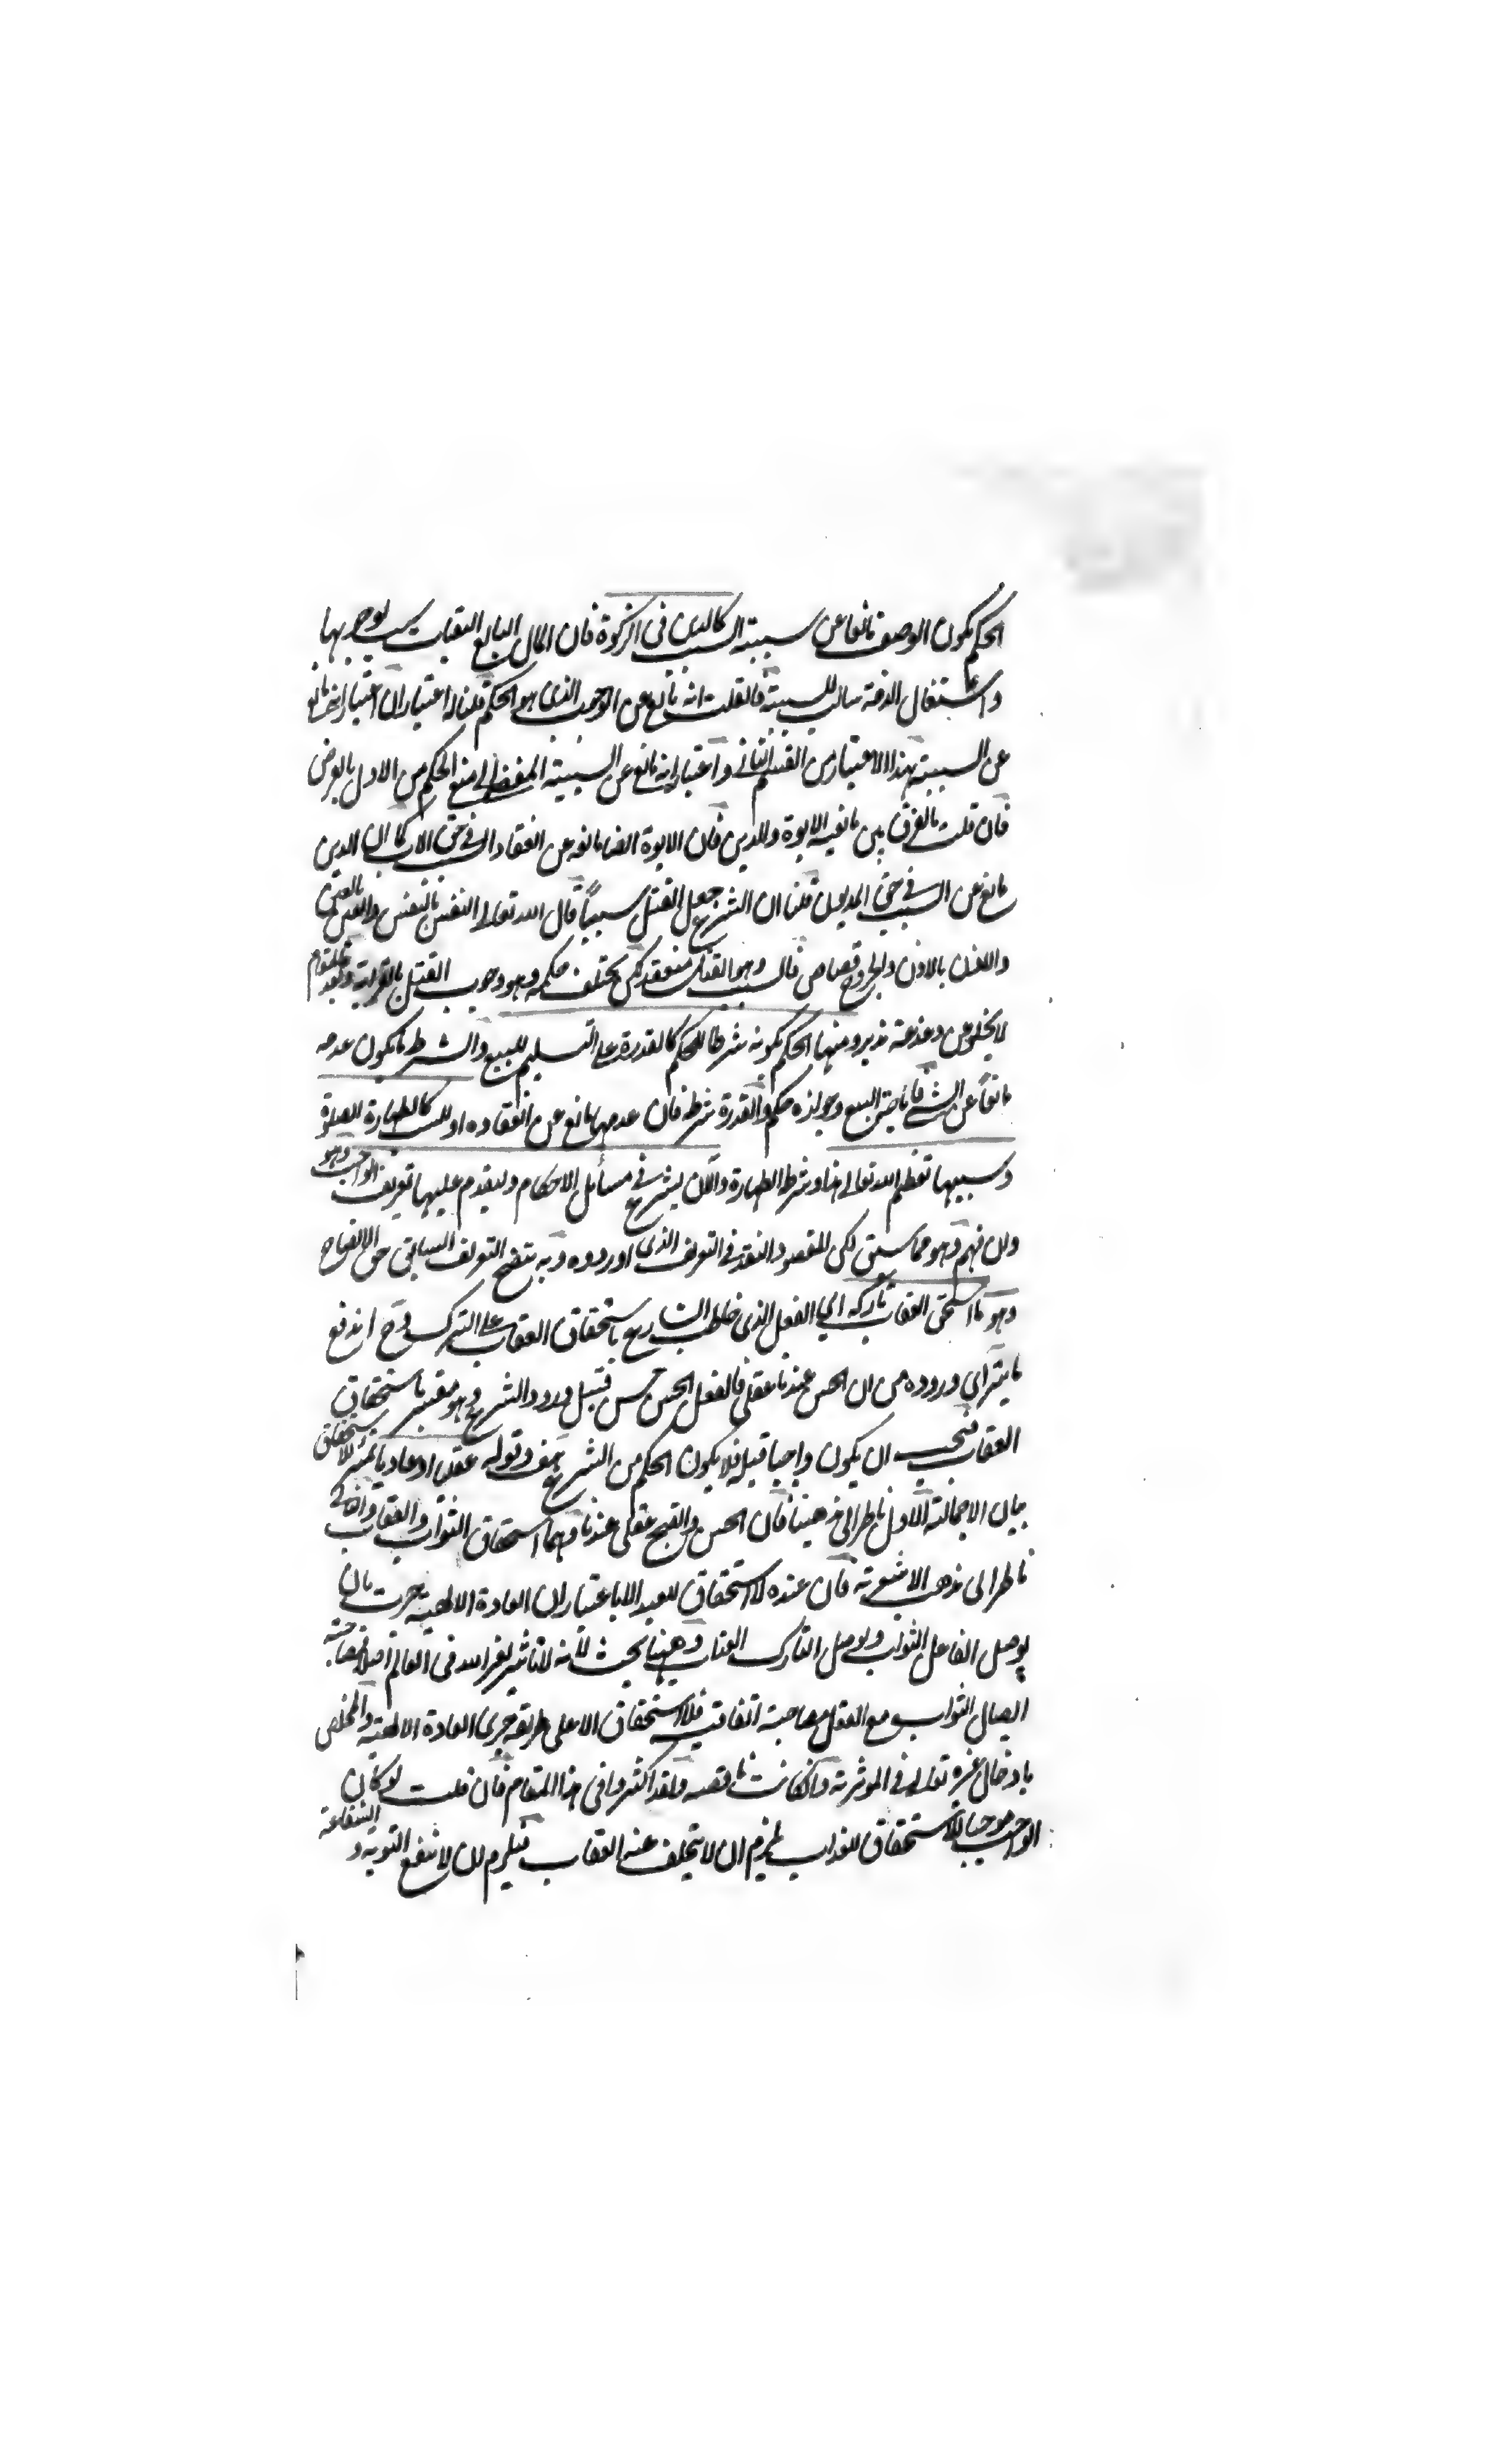 الحكم بكون الوصف مانعا عن سببية السبب كالدين فى الزكوة فان المال البالغ النصاب سبب لوجوبها
واشتغال الذمة سالب للسببية فانقلت انه مانع عن الوجوب الذى هو الحكم قلنا له اعتباران اعتبار انه مانع
عن السببية بهذا الاعتبار من القسم الثانى واعتبار انه مانع عن السببية المفضى الى منع الحكم من الاول بالعرض
فان قلت ما الفرق بين مانعية الابوة والدين فان الابوة ايضا مانعة عن انعقاد السبب فى حق الاب كما ان الدين
مانع عن السبب فى حق المديون قلنا ان الشرع جعل القتل سببا قال الله تعالى النفس بالنفس والعين بالعين
والاذن بالاذن والجروح قصاص فالسبب وهو القتل منعقد لكن يختلف حكمه وهو وجوب القتل بالقرابة وبعد فالمقام
لا يخلو عن دغدغة تدبر ومنها الحكم بكونه شرطا للحكم كالقدرة على التسليم للبيع والشرط ما يكون عدمه
مانعا عن الشئ فان البيع وجوازه حكم والقدرة شرطه فان عدمها مانع عن انعقاده او للسبب كالطهارة للصلوة
وسببها تعظيم الله تعالى هذا وشرطه الطهارة والان يشرع فى مسائل الاحكام وليقدم عليها تعريف الواجب وهو
وان فهم وهو مما سبق لكن المقصود النقد فى التعريف الذى اوردوه وبه يتضح التعريف السابق حق الاتضاح
وهو ما استحق العقاب تاركه اى الفعل الذى خاطب الشارع باستحقاق العقاب على الترك وح اندفع
ما يترائى وروده من ان الحسن عندنا عقلى فالفعل الحسن حسن قبل ورود الشرع وهو مفسر باستحقاق
العقاب فيجب ان يكون واجبا قبله فلا يكون الحكم من الشرع هف وقوله عقلا او عادة تميز للاستحقاق
بيان الاجمالية الاول ناظر الى مذهبنا فان الحسن والقبح عقلى عندنا وهما استحقاق الثواب والعقاب والثانى
ناظر الى مذهب الاشعرية فان عنده لا استحقاق للعبد الا باعتبار ان العادة الالهية جرت بان
يوصل الفاعل الثواب ويوصل التارك العقاب وههنا بحث لانه لا تاثير لغير الله فى العالم اصلا فمصاحبة
ايصال الثواب مع الفعل مصاحبة اتفاقية فلا استحقاق الا على طريقة جرى العادة الالهية والمخلص
بادخال غيره تعالى فى الموثرية وانكانت ناقصة ولقد اكثروا فى هذا المقام فان قلت لو كان
الواجب موجبا لاستحقاق العذاب يلزم ان لا يتخلف عنه العقاب فيلزم ان لا ينفع التوبة والشفاعة